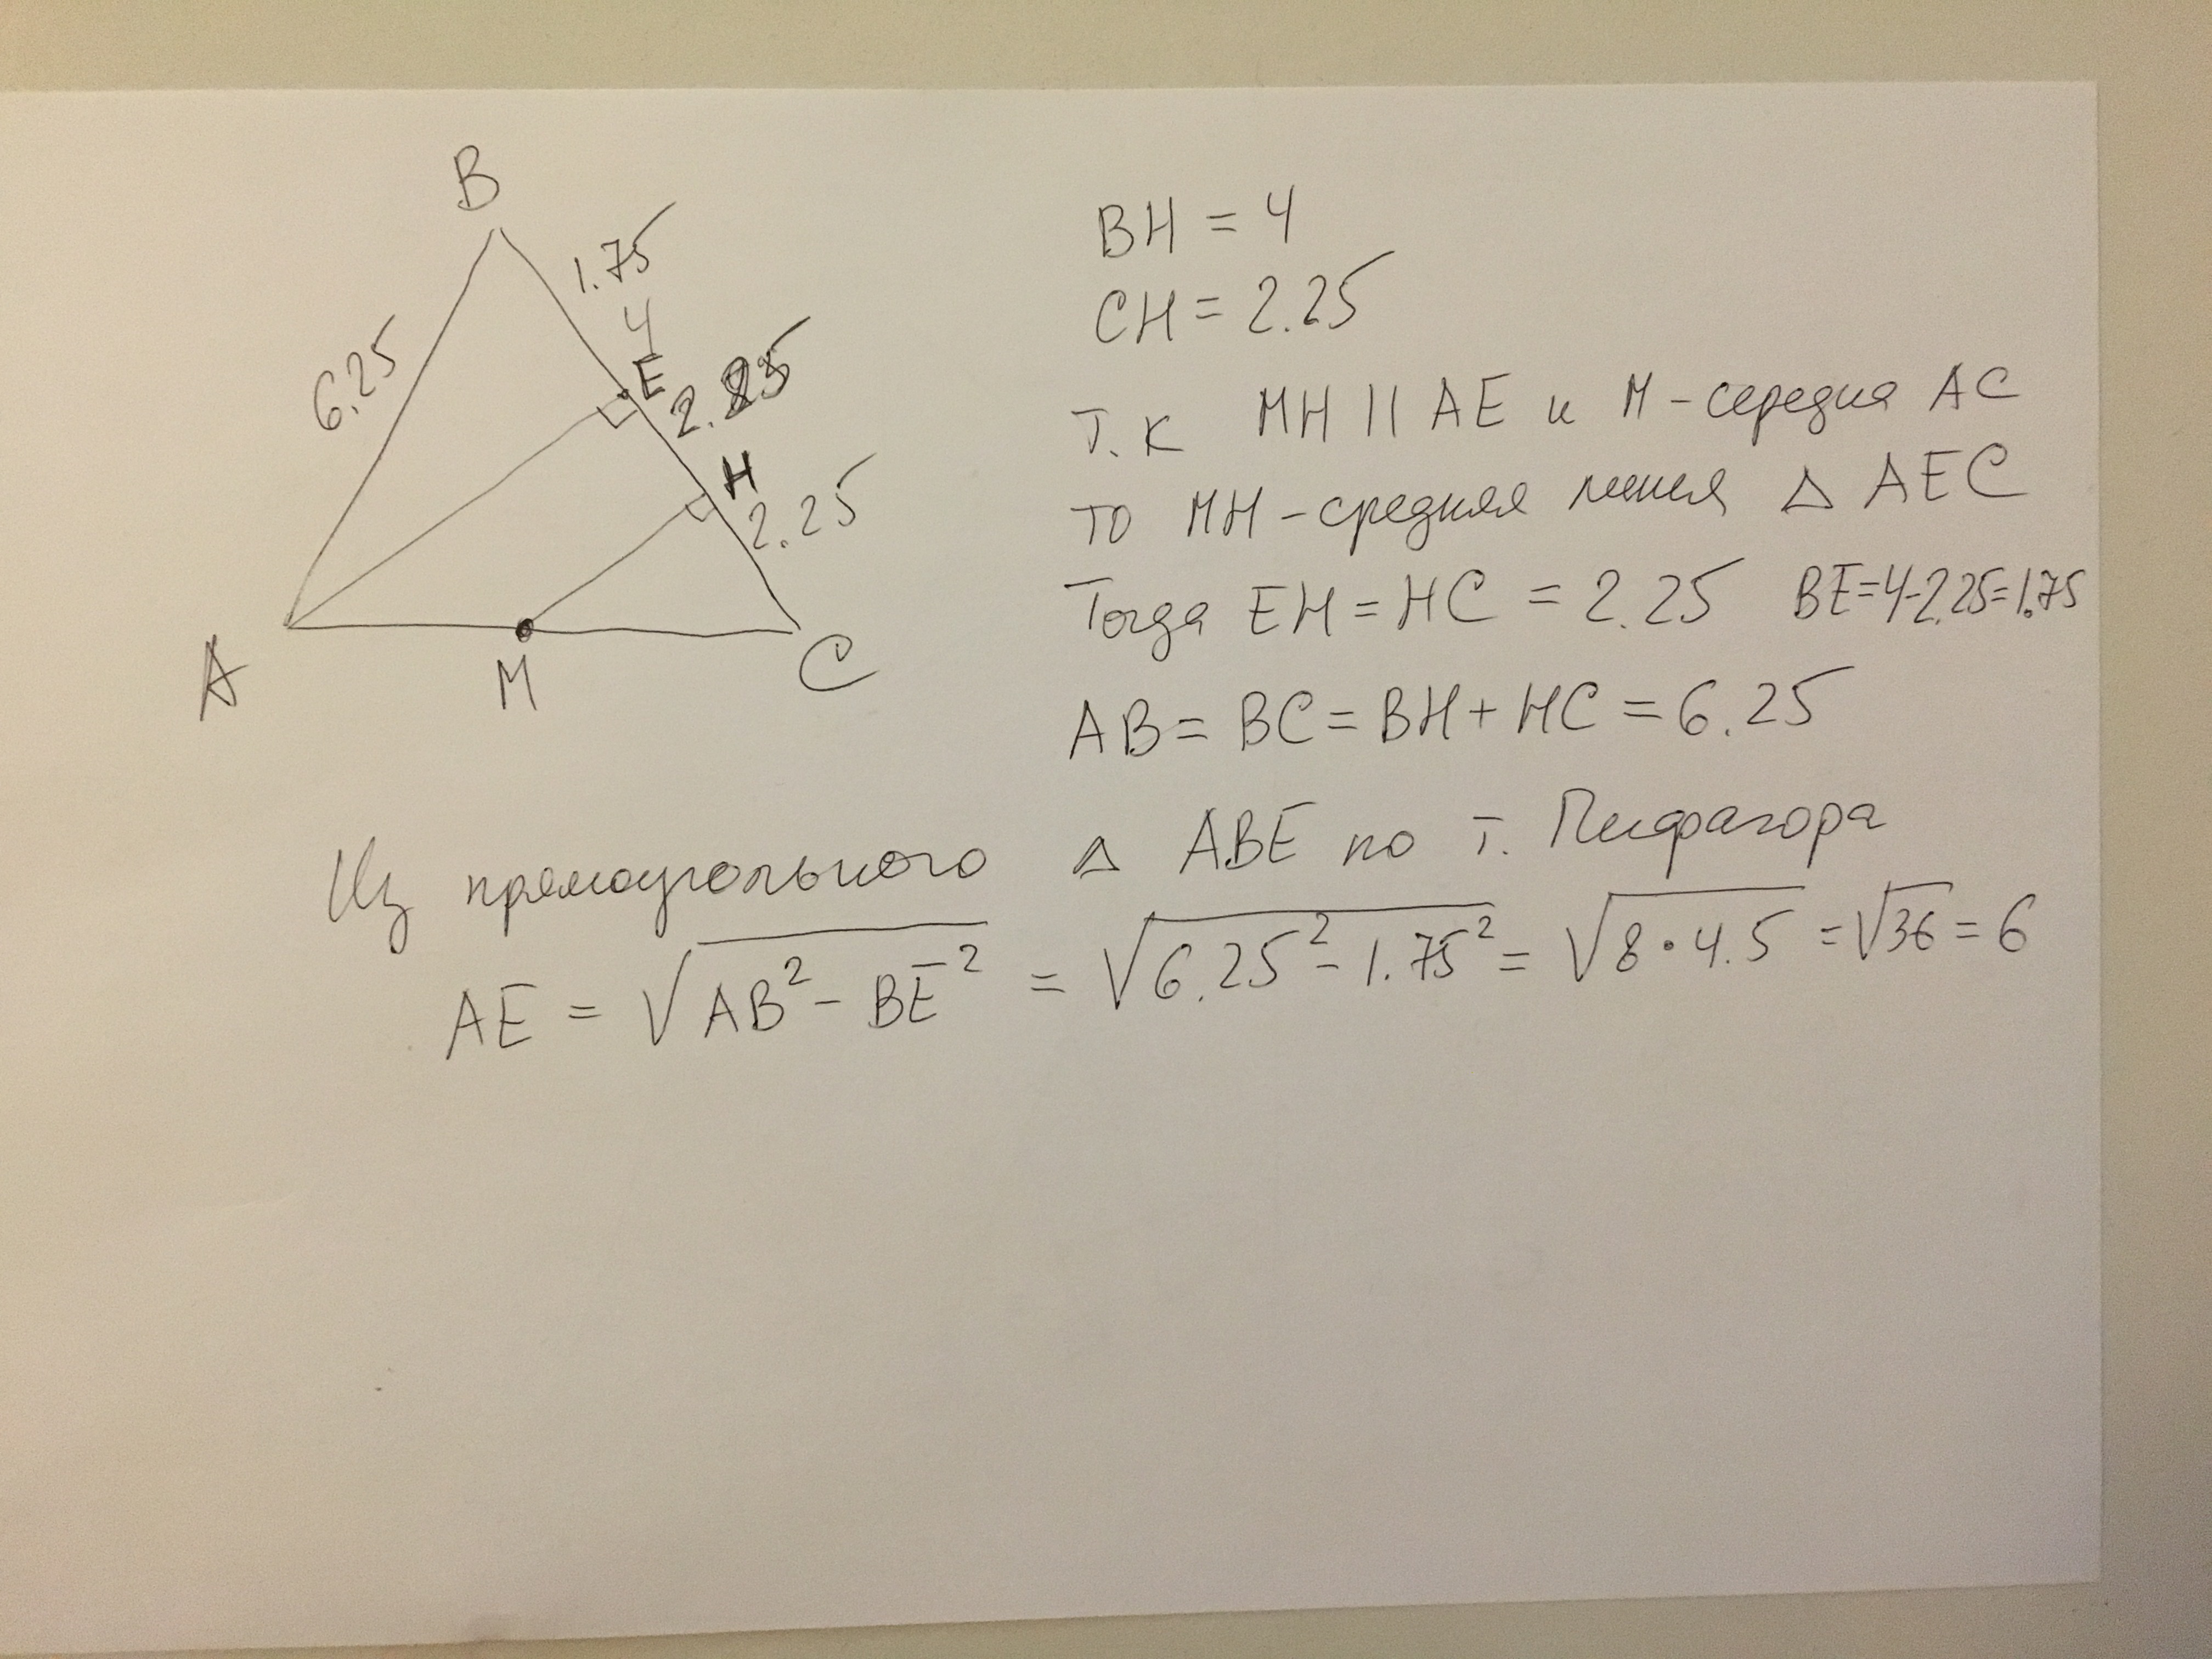 B
1.75
4
6.25
E
2.25
H
2.25
A
M
C
BH = 4
CH = 2.25
т.к MH || AE и M - середина AC
то MH - средняя линия Δ AEC
Тогда EH = HC = 2.25 BE=4-2.25=1.75
AB = BC = BH + HC = 6.25
Из прямоугольного Δ ABE по т. Пифагора
AE = √AB² - BE² = √6.25² - 1.75² = √8 · 4.5 = √36 = 6